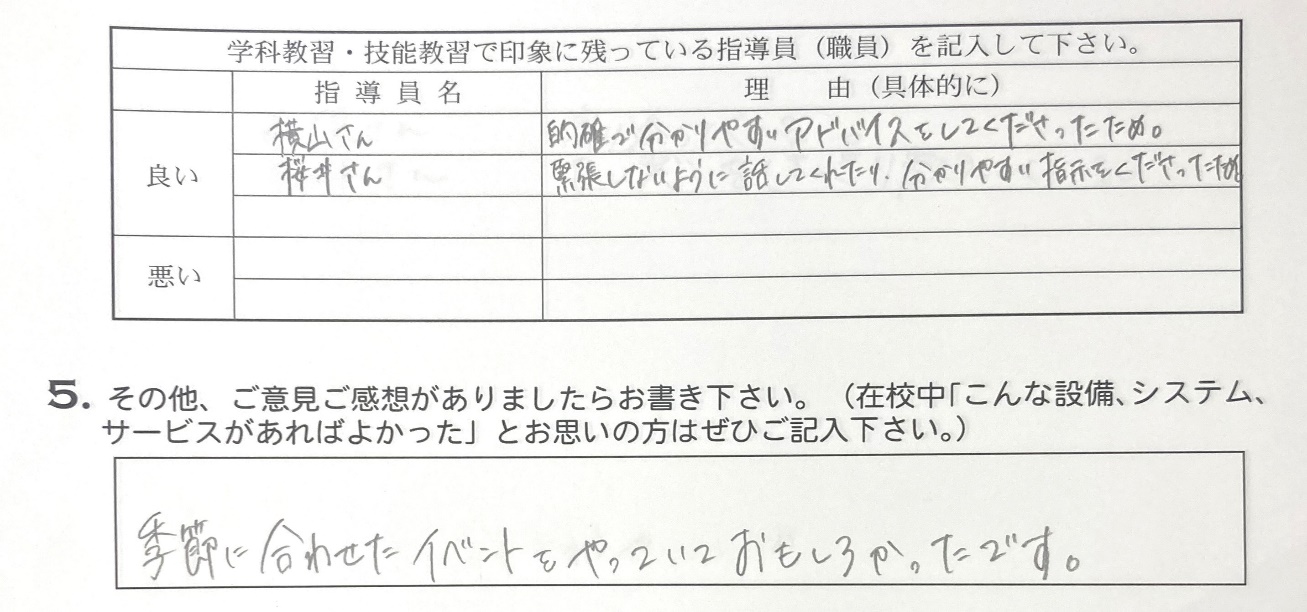 学科教習・技能教習で印象に残っている指導員（職員）を記入して下さい。
指導員名 理由（具体的に）
良い 横山さん 的確で分かりやすいアドバイスをしてくださったため。
桜井さん 緊張しないように話してくれたり、分かりやすい指示をくださったため
悪い
5. その他、ご意見ご感想がありましたらお書き下さい。（在校中「こんな設備、システム、
サービスがあればよかった」とお思いの方はぜひご記入下さい。）
季節に合わせたイベントをやっていておもしろかったです。